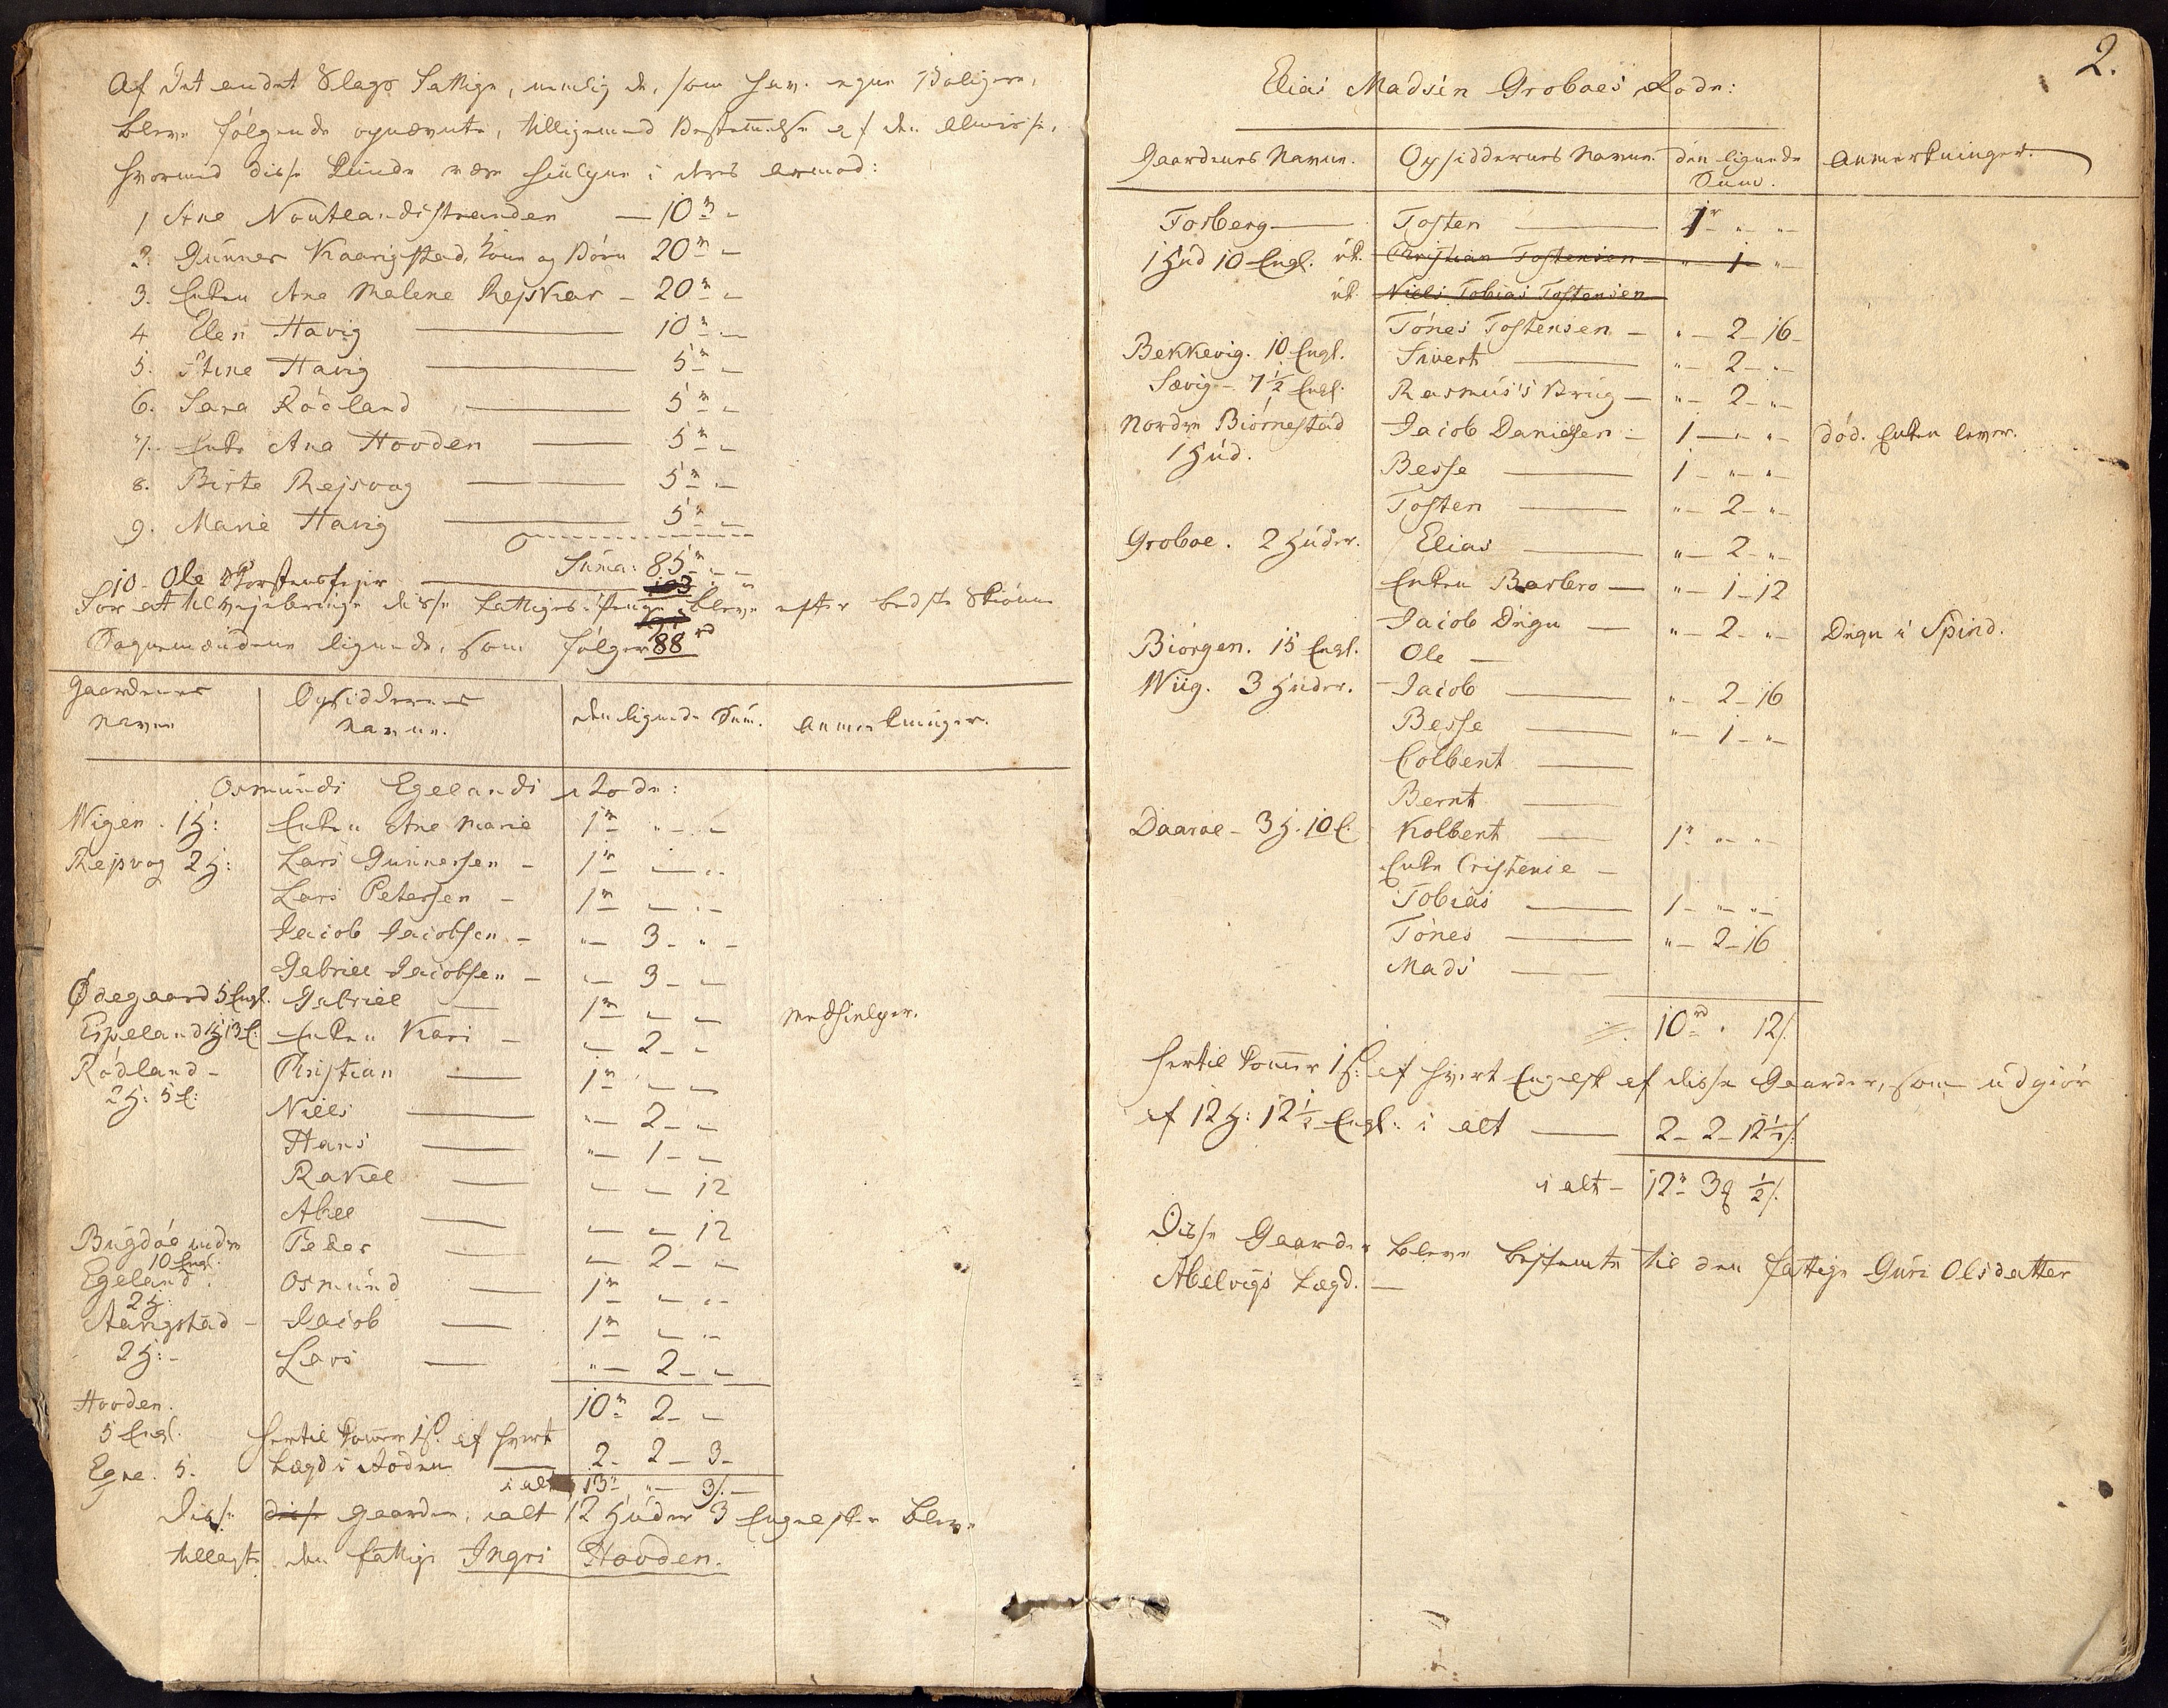 Af det andet Slags Fattige, nemlig de, som hav. egne Boliger,
bleve følgende opnævnte, tilligemed Bestem̄else af den Almisse,
hvormed disse kunde være hiulpne i deres Armod:
1 Ane Noutlandsstranden — 10 rd „
2. Gunner Kaarigstad, Kone og Børn 20 rd „
3. Enken Ane Malene Rejskar – 20 rd „
4 Elen Havig — 10 rd „
5. Stine Havig — 5 rd „
6. Sara Rödland — 5 rd „
7. Enke Ane Hovden — 5 rd „
8. Birte Rejsvog — 5 rd „
9. Marie Havig — 5 rd „
Suma: 85 rd „ „
10 - Ole Torstensfejer — 103 „ „
For at tilvejebringe disse Fattiges Penge, bleve efter bedste Skiönne
Sognemændene lignede, som følger 88 rd
Gaardenes Navne | Opsiddernes Navne. | den lignede Sum. | Anmerkninger.
Osmunds Egelands Rode:
Wigen. 1 H: Enken Ane Marie 1 rd „ „
Rejsvog 2 H: Lars Gunnersen – 1 rd „ „
Lars Petersen – 1 rd „ „
Jacob Jacobsen – „ 3 „
Gabriel Jacobsen – „ 3 „
Ödegaard 5 Engl. Gabriel — 1 rd „ „ Medhielper.
Espeland 1 H 13 E: Enken Kari – „ 2 „
Rödland – Christian — 1 rd „ „
2 H: 5 E: Niels — „ 2 „
Hans — „ 1 „
Rakel — „ „ 12
Abel — „ „ 12
Bugdöe indre 10 Engl. Peder — „ 2 „
Egeland 2 H: Osmund — 1 rd „ „
Aarigstad – Jacob — 1 rd „ „
2 H: – Lars — „ 2 „
Hovden. 10 rd 2 „
5 Engl. Hertil kom̄er 1 s. af hvert
Egne. 5. Lægd i Roden — 2 – 2 – 3 –
i alt 13 rd „ 3 s.
Disse disse Gaarde, ialt 12 Huder 3 Engelsker bleve
tillagt den fattige Ingri Hovden.
2.
Elias Madsen Groboes Rode:
Gaardenes Navne. | Opsiddernes Navne. | den lignede Sum. | Anmerkninger.
Fosberg — Tosten — 1 r „ „
1 Hud 10 Engl. ut. Christian Tostensen – „ 1 „
ut. Niels Tobias Tostensen
Tönes Tostensen – „ 2 – 16
Bekkevig. 10 Engl. Sivert — „ 2 „
Sævig – 7½ Engl. Rasmus's Brug – „ 2 „
Nordre Biörnestad Jacob Danielsen – 1 „ „ död. Enken lever.
1 Hud. Besse — 1 „ „
Tosten — „ 2 „
Groboe. 2 Huder. Elias — „ 2 „
Enken Barbro — „ 1 – 12
Jacob Degn — „ 2 „ Degn i Spind.
Biörgen. 15 Engl. Ole —
Wiig. 3 Huder. Jacob — „ 2 – 16
Besse — „ 1 „
Colbent —
Bernt —
Daaroe – 3 H. 10 E. Kolbent — 1 r „ „
Enke Cristenie –
Tobias — 1 „ „
Tönes — „ 2 – 16
Mads —
10 rd „ 12 s.
Hertil kom̄er 1 s. af hvert Engelsk af disse Gaarder, som udgiör
af 12 H: 12½ Engl. i alt — 2 – 2 – 12½ s.
i alt – 12 r 3 ½ s.
Disse Gaarder bleve bestemte til den fattige Guri Olsdatter
Abelvigs Lægd. —